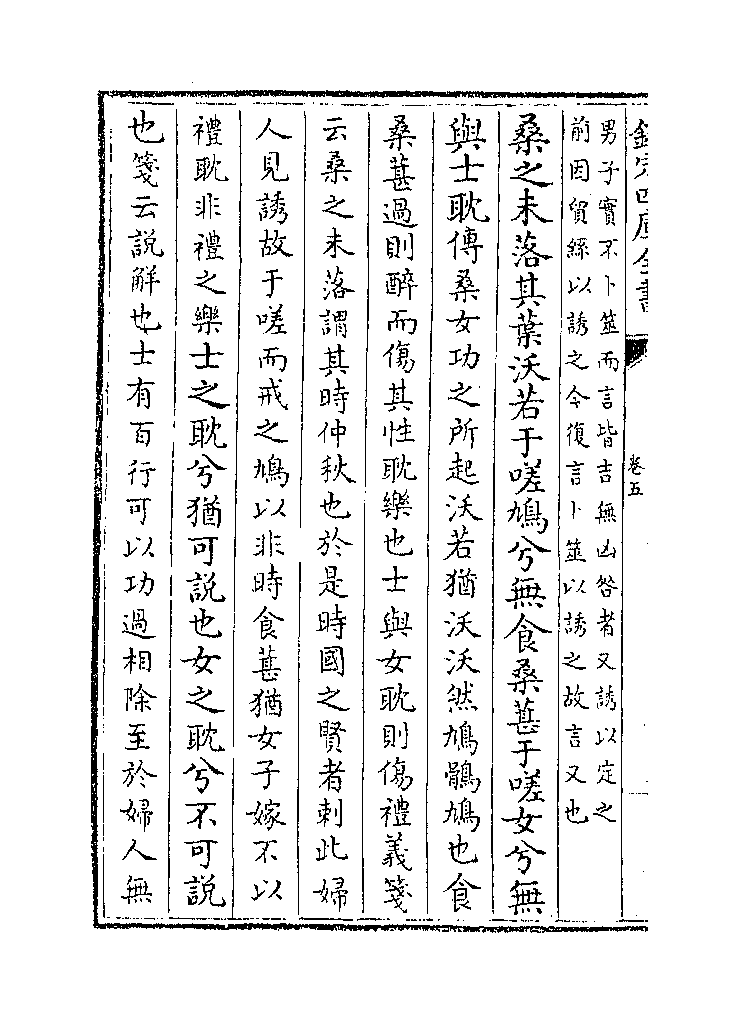 欽定四庫全書
卷五
男子實不卜筮而言皆吉無凶咎者又誘以定之
前因貿絲以誘之今復言卜筮以誘之故言又也
桑之未落其葉沃若于嗟鳩兮無食桑葚于嗟女兮無
與士耽傳桑女功之所起沃若猶沃沃然鳩鶻鳩也食
桑葚過則醉而傷其性耽樂也士與女耽則傷禮義箋
云桑之未落謂其時仲秋也於是時國之賢者刺此婦
人見誘故于嗟而戒之鳩以非時食葚猶女子嫁不以
禮耽非禮之樂士之耽兮猶可説也女之耽兮不可説
也箋云説解也士有百行可以功過相除至於婦人無